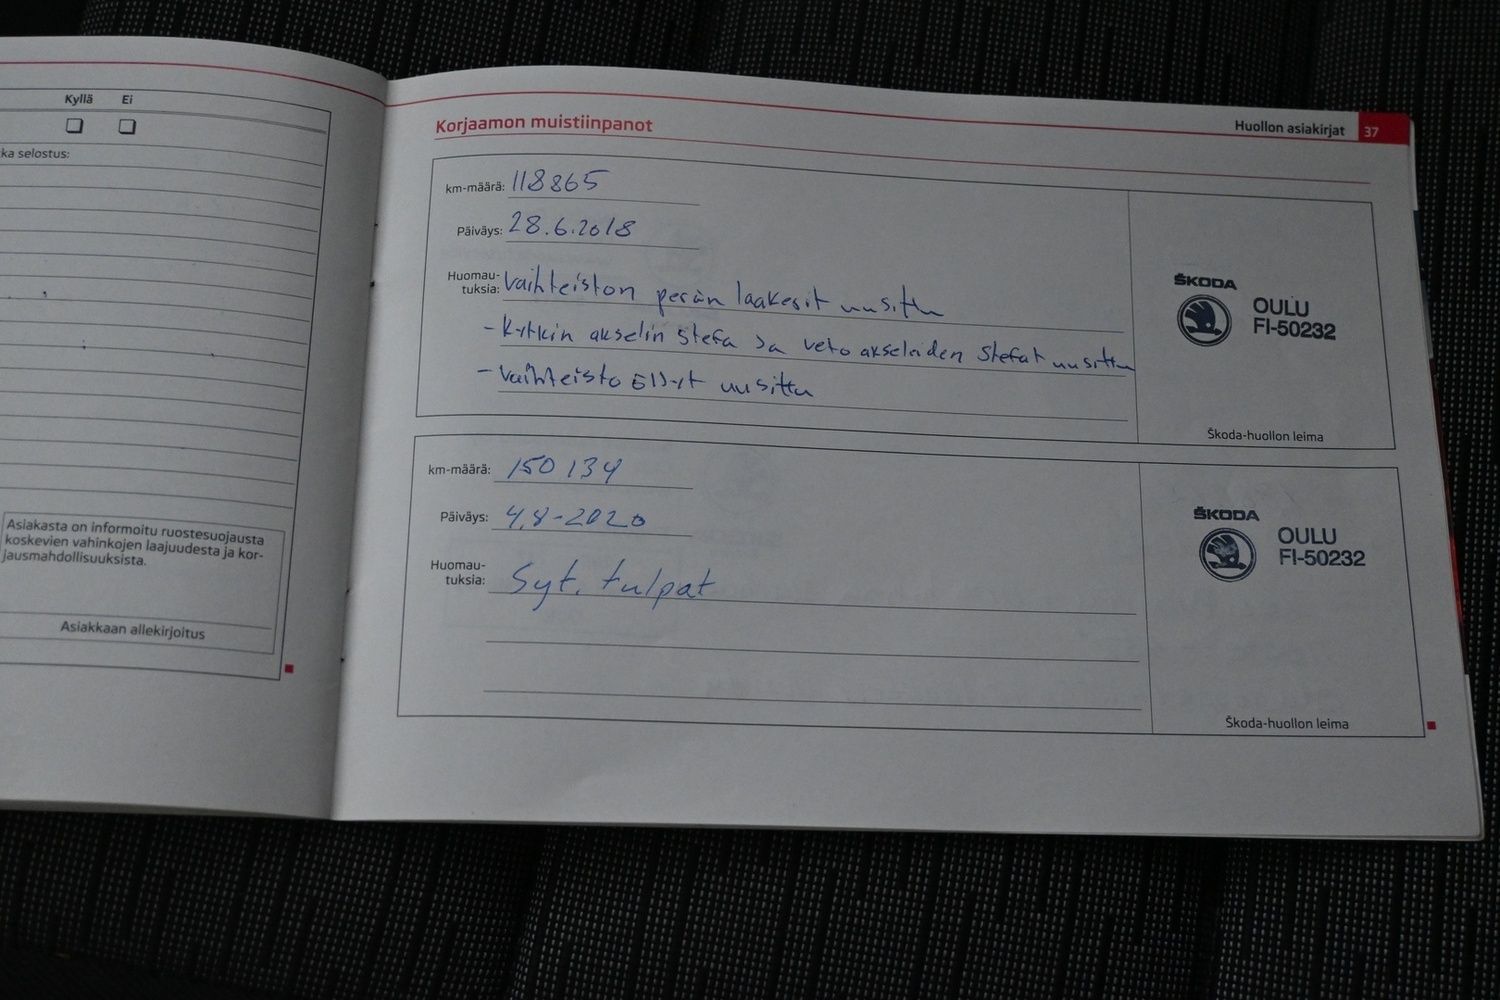 Kyllä Ei
ka selostus:
Asiakasta on informoitu ruostesuojausta
koskevien vahinkojen laajuudesta ja kor-
jausmahdollisuuksista.
Asiakkaan allekirjoitus
Korjaamon muistiinpanot
Huollon asiakirjat 37
km-määrä: 118865
Päiväys: 28.6.2018
Huomau-
tuksia: Vaihteiston perän laakerit uusittu
- kytkin akselin stefa ja vetoakseleiden stefat uusittu
- vaihteisto öljyt uusittu
ŠKODA
OULU
FI-50232
Škoda-huollon leima
km-määrä: 150134
Päiväys: 4.8-2020
Huomau-
tuksia: Syt. tulpat
ŠKODA
OULU
FI-50232
Škoda-huollon leima